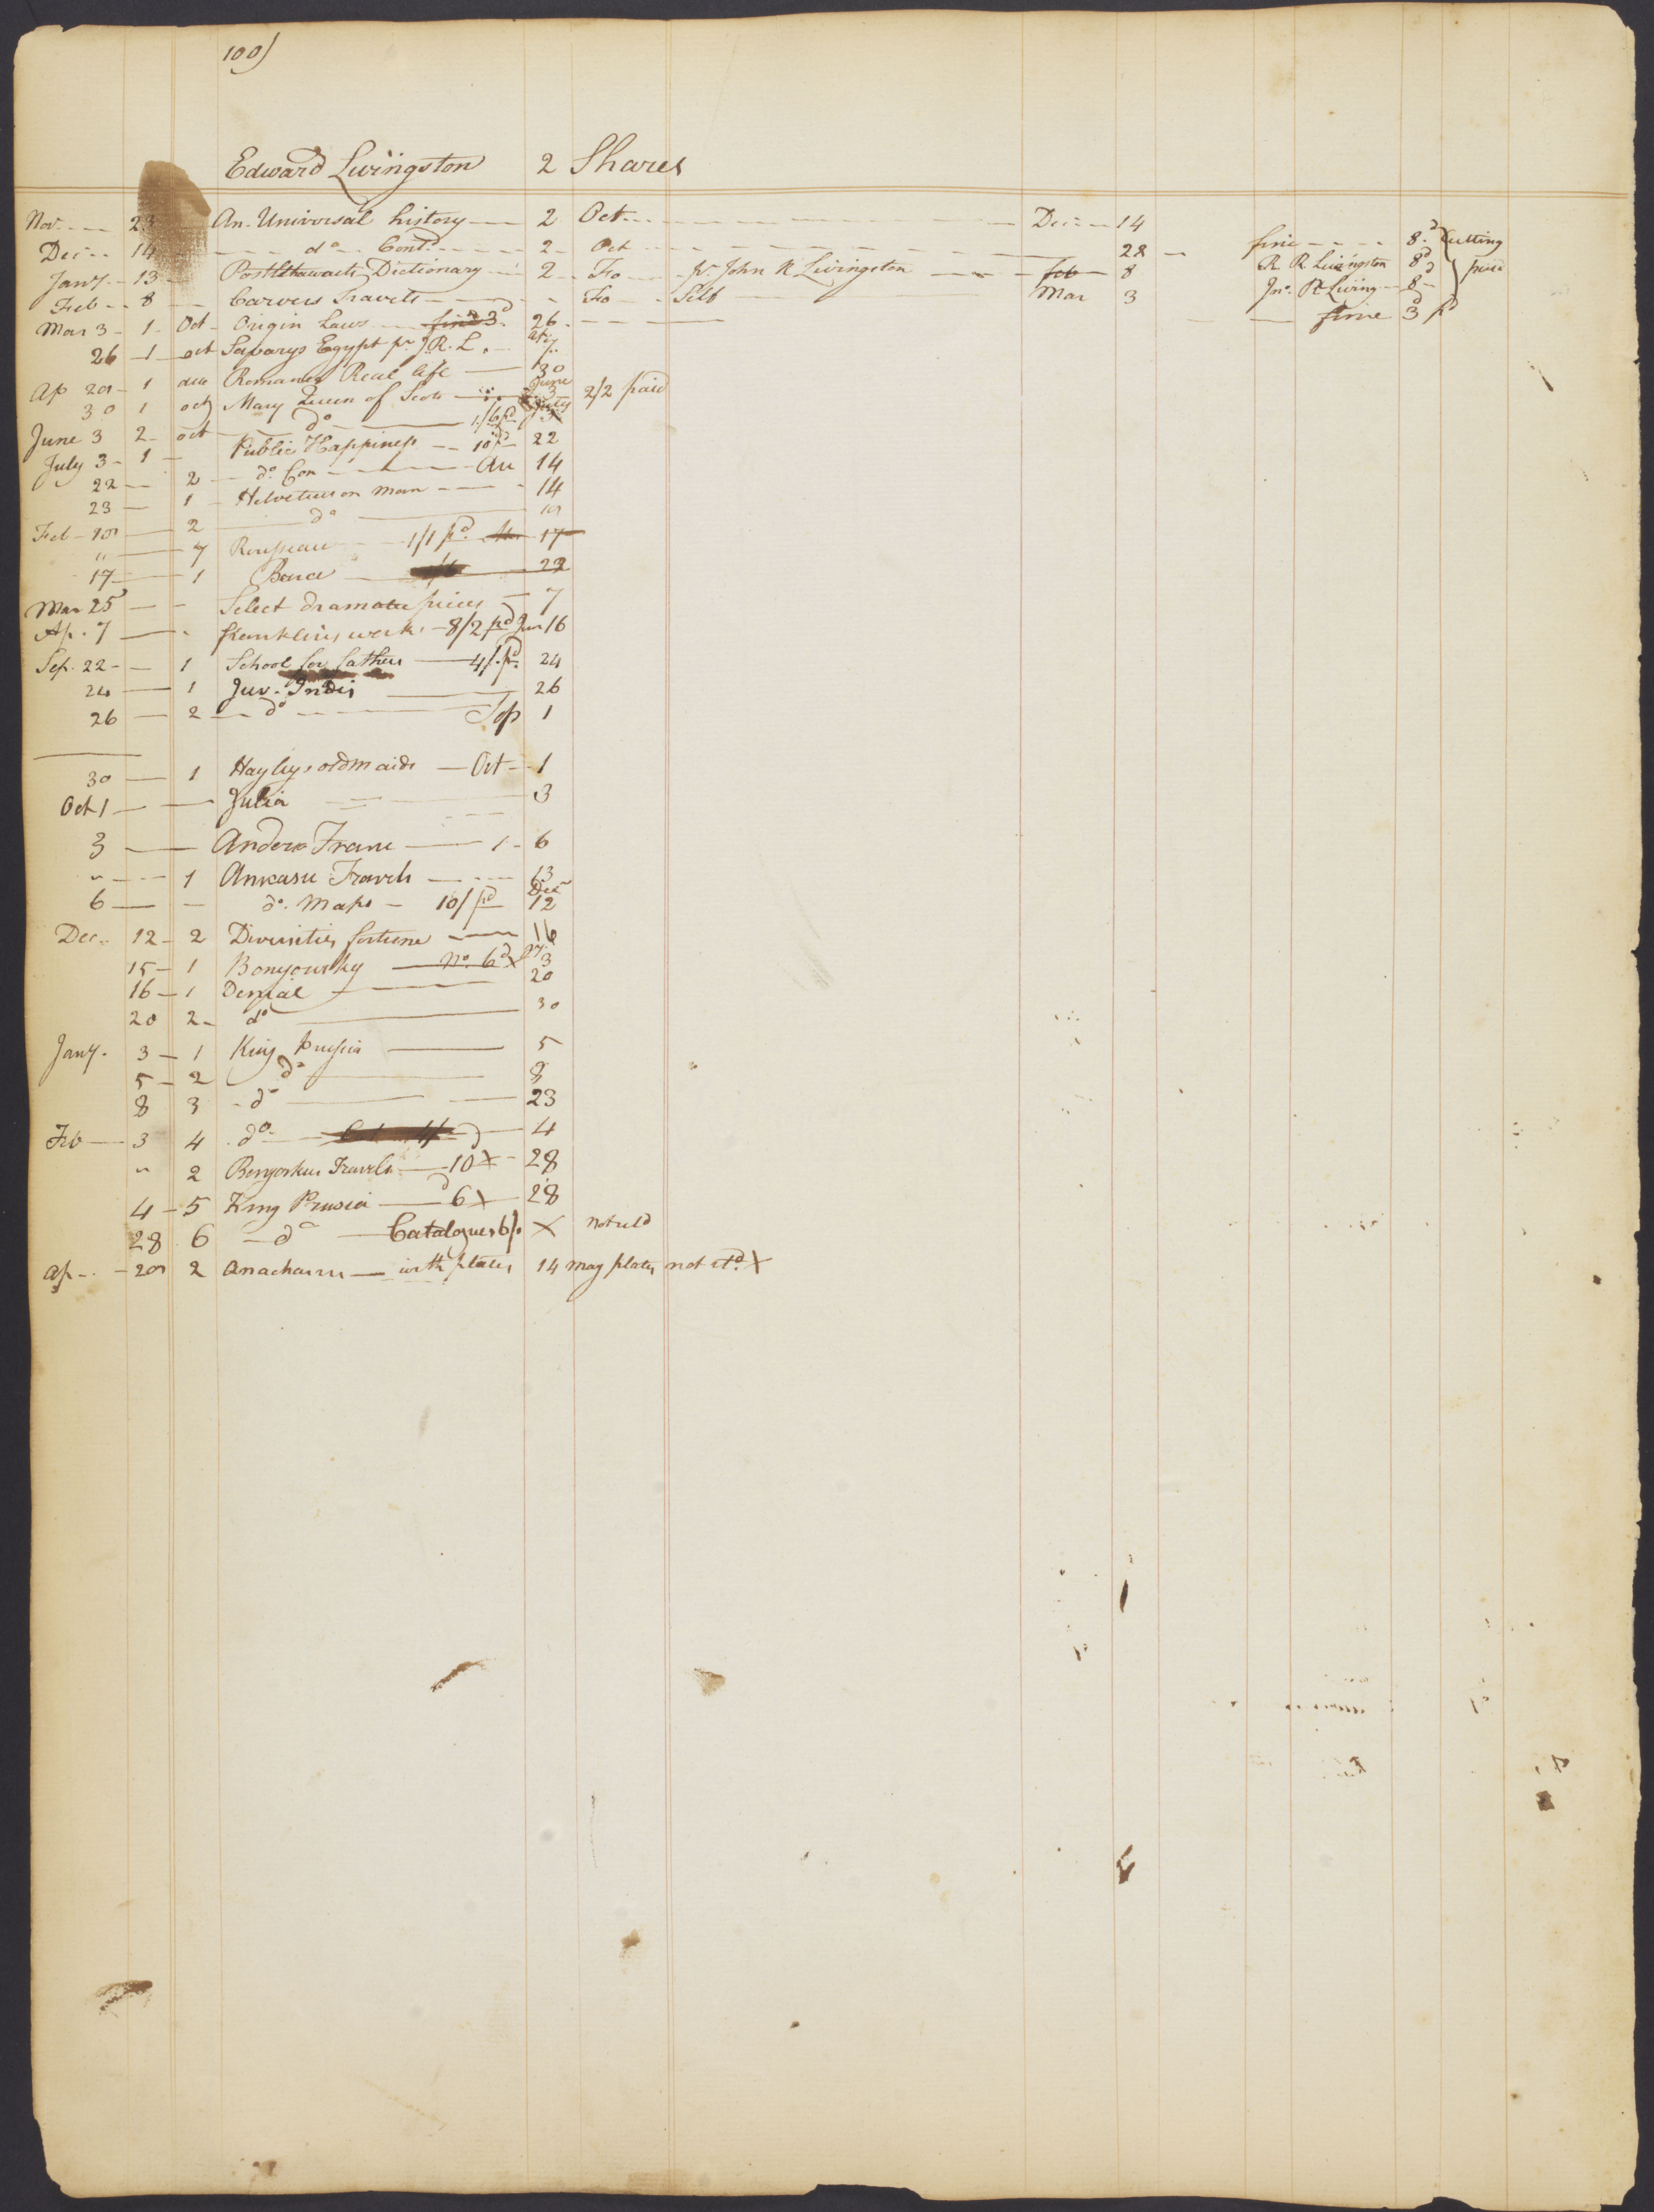 100)
Edward Livingston 2 Shares
Nov. 23 An. Universal history 2 Oct. Dec 14
Dec 14 do Contd 2 Oct 28 fine 8d Cutting
Jany 13 Postlethwaits Dictionary 2 Fo pr. John R Livingston feb 8 R R Livingston 8d paid
Feb 8 Carvers Travels Fo Self Mar 3 Jno. R Living 8
Mar 3 1 Oct Origin Laws fine 3d 26 fine 3d pd
26 1 oct Savarys Egypt pr J.R.L. ap 7
Ap 20 1 duo Romance Real life 30
30 1 oct Mary Queen of Scots June 3 2/2 paid
June 3 2 oct do 1/6 pd July 3
July 3 1 Public Happiness 10d pd 22
22 2 do Con Au 14
23 1 Helvetius on man 14
Feb 10 2 do 10
" 7 Rousseau 1/1 pd 17
17 1 Bruce 22
Mar 25 Select dramatic pieces 7
Ap. 7 franklins works 8/2 pd Jun 16
Sep. 22 1 School for fathers 4/ pd 24
24 1 Juv. Indis 26
26 2 do Sep 1
30 1 Hayleys old maids Oct 1
Oct 1 Julia 3
3 Anders Frane 1 6
" 1 Travels 13
6 do. Maps 10/ pd Dec 12
Dec. 12 2 Diversities fortune 16
15 1 Bonyowsky No. 6d X Jy. 3
16 1 Denial 20
20 2 do 30
Jany. 3 1 King prussia 5
5 2 do 8
8 3 do 23
Feb 3 4 do 4
" 2 Benyoskus Travels 10d X 28
4 5 King Prusia 6d X 28
28 6 do Catalogues 6/ X not retd
ap 20 2 Anacharsis with plates 14 may plates not rtd. X